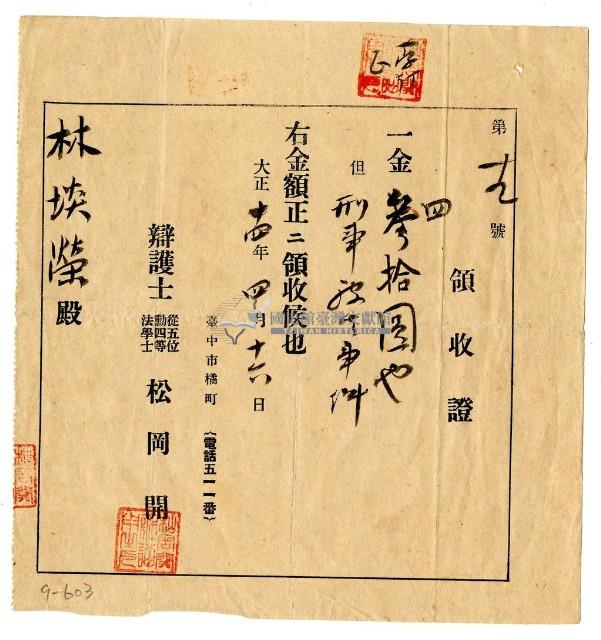 第 十九 號
領收證
一金 參拾圓也
四
但 刑事 事件
右金額正ニ領收候也
大正 十四 年 四 月 十六 日
臺中市橘町 (電話五一一番)
辯護士 從五位 勳四等 法學士 松岡開
林埮榮殿
國史館臺灣文獻館
TAIWAN HISTORICA
9-603